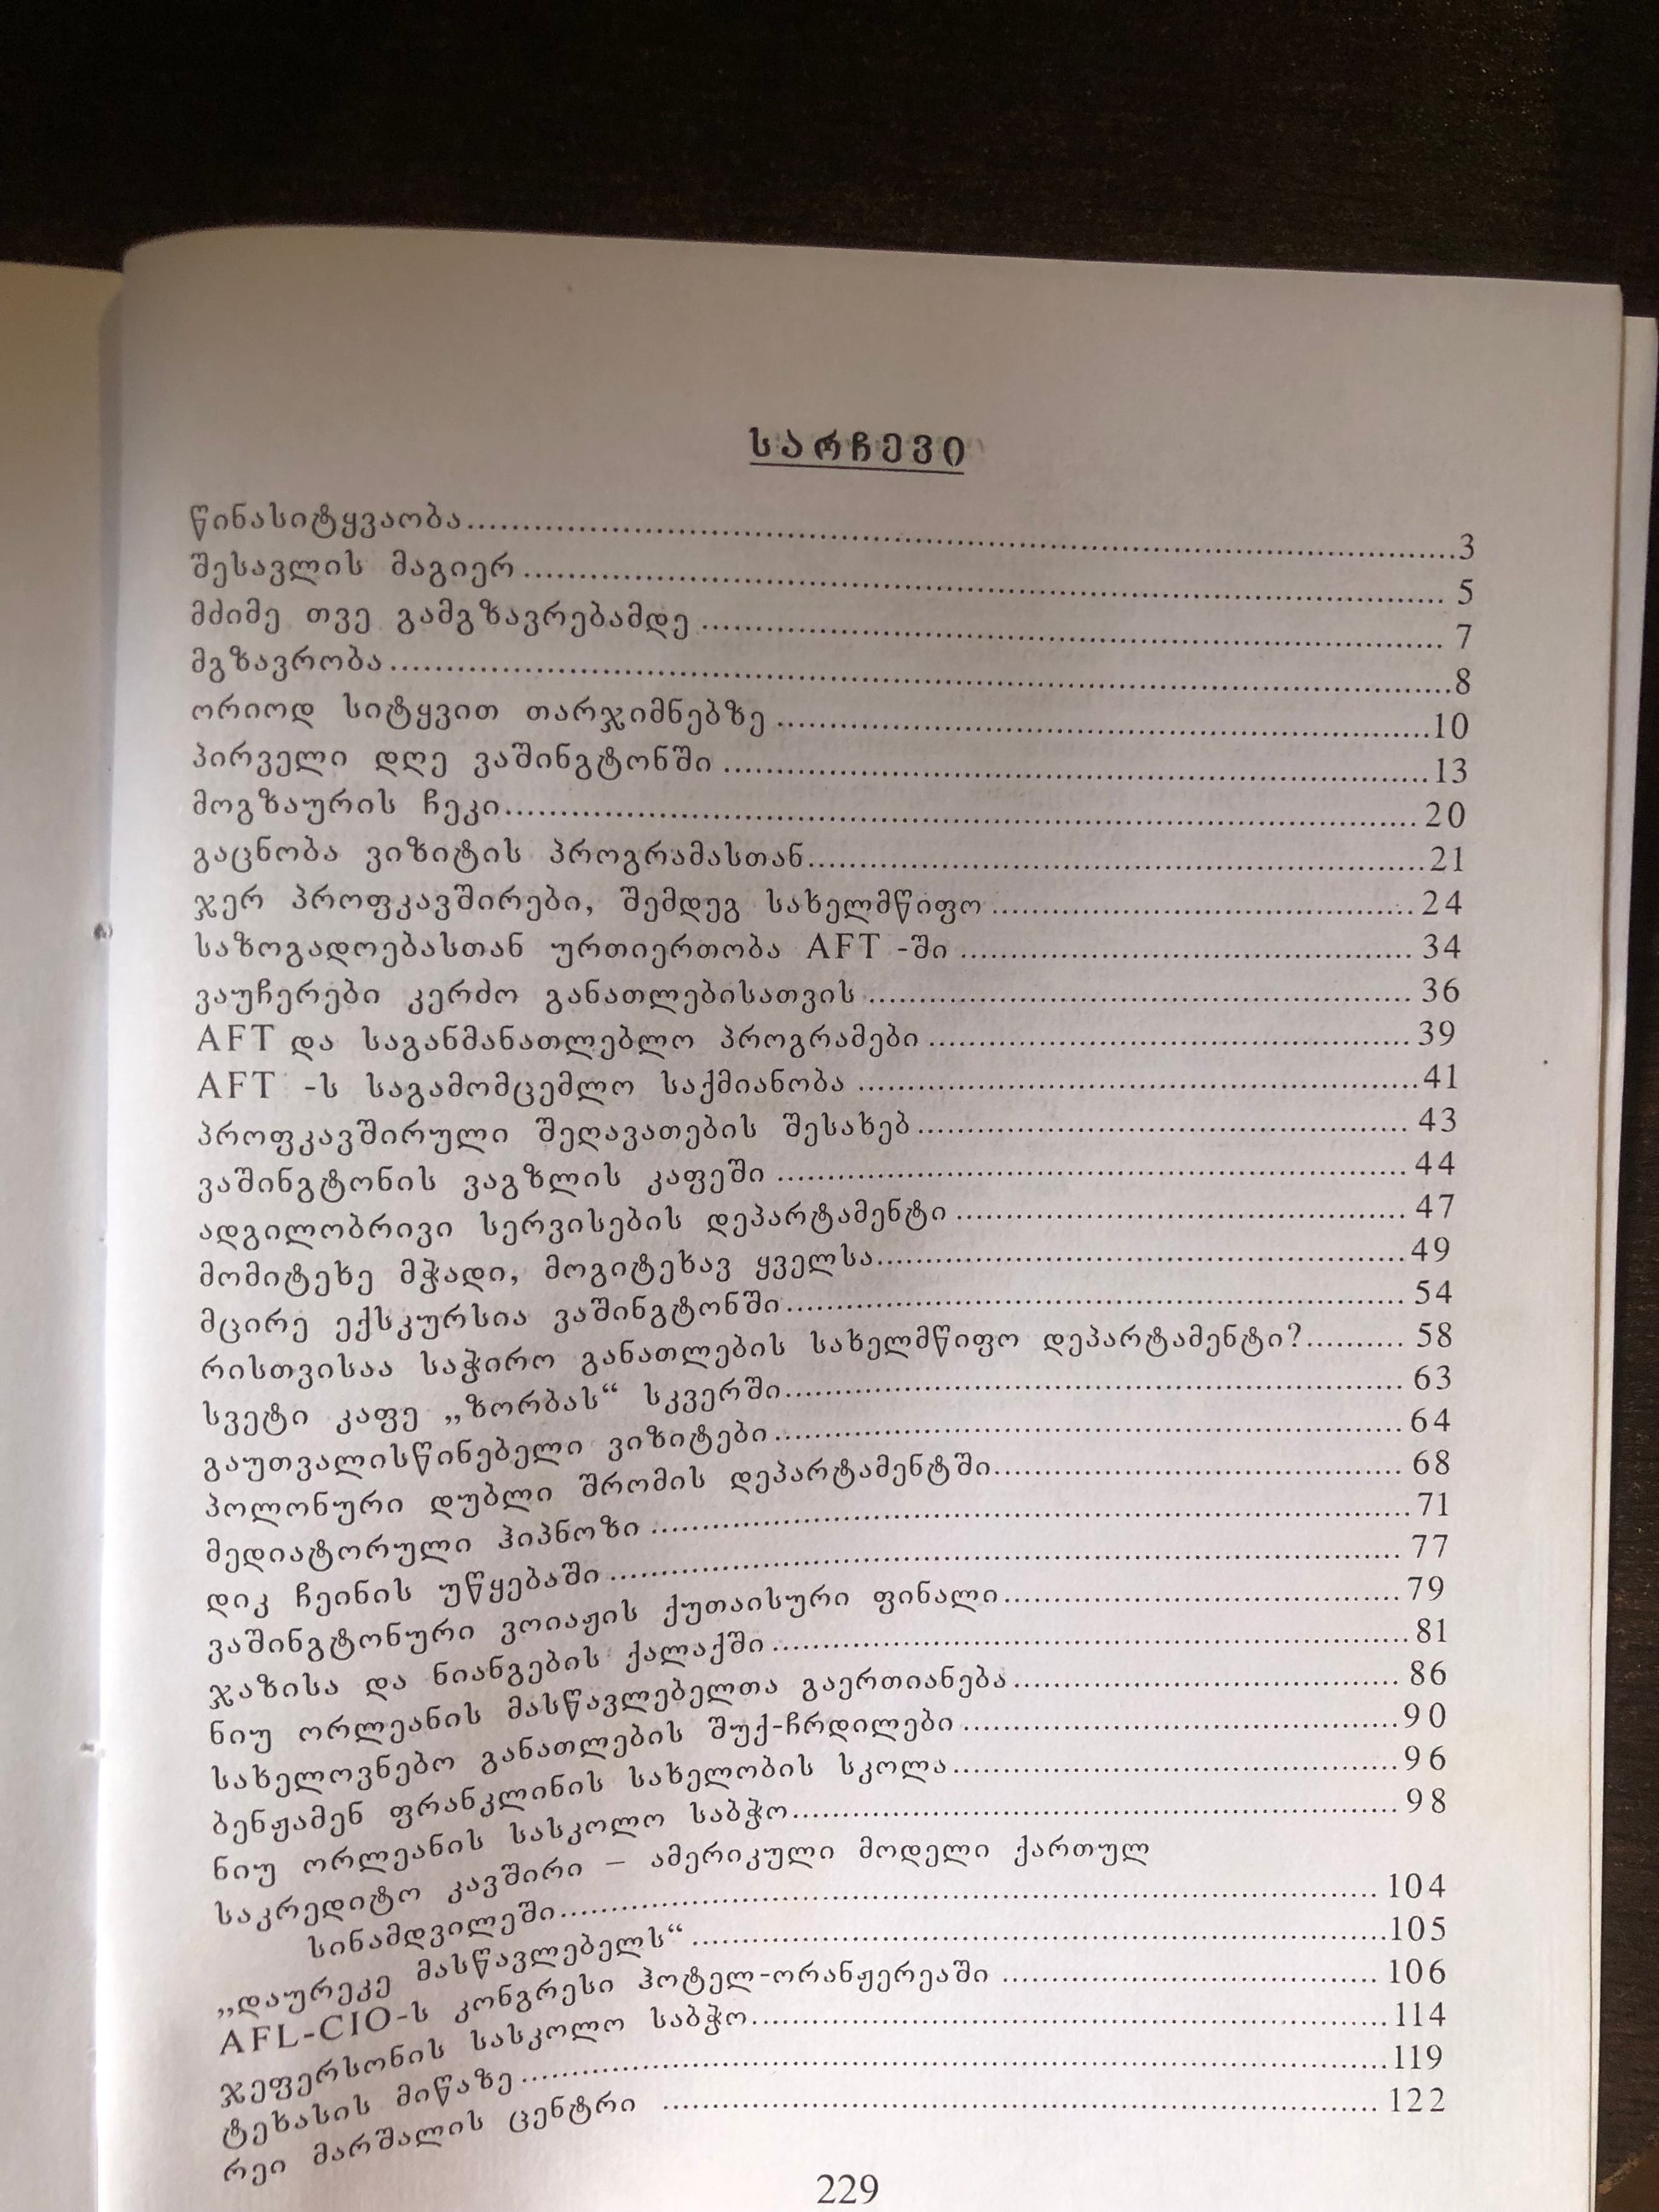 სარჩევი
წინასიტყვაობა..........3
შესავლის მაგიერ.......... 5
მძიმე თვე გამგზავრებამდე .......... 7
მგზავრობა..........8
ორიოდ სიტყვით თარჯიმნებზე ..........10
პირველი დღე ვაშინგტონში ..........13
მოგზაურის ჩეკი..........20
გაცნობა ვიზიტის პროგრამასთან..........21
ჯერ პროფკავშირები, შემდეგ სახელმწიფო..........24
საზოგადოებასთან ურთიერთობა AFT -ში .......... 34
ვაუჩერები კერძო განათლებისათვის .......... 36
AFT და საგანმანათლებლო პროგრამები ..........39
AFT -ს საგამომცემლო საქმიანობა ..........41
პროფკავშირული შეღავათების შესახებ.......... 43
ვაშინგტონის ვაგზლის კაფეში ..........44
ადგილობრივი სერვისების დეპარტამენტი .......... 47
მომიტეხე მჭადი, მოგიტეხავ ყველსა..........49
მცირე ექსკურსია ვაშინგტონში.......... 54
რისთვისაა საჭირო განათლების სახელმწიფო დეპარტამენტი?.......... 58
სვეტი კაფე „ზორბას“ სკვერში.......... 63
გაუთვალისწინებელი ვიზიტები.......... 64
პოლონური დუბლი შრომის დეპარტამენტში.......... 68
მედიატორული ჰიპნოზი ..........71
დიკ ჩეინის უწყებაში .......... 77
ვაშინგტონური ვოიაჟის ქუთაისური ფინალი.......... 79
ჯაზისა და ნიანგების ქალაქში ..........81
ნიუ ორლეანის მასწავლებელთა გაერთიანება.......... 86
სახელოვნებო განათლების შუქ-ჩრდილები ..........90
ბენჟამენ ფრანკლინის სახელობის სკოლა..........96
ნიუ ორლეანის სასკოლო საბჭო.......... 98
საკრედიტო კავშირი – ამერიკული მოდელი ქართულ
სინამდვილეში.......... 104
„დაურეკე მასწავლებელს“ ..........105
AFL-CIO-ს კონგრესი ჰოტელ-ორანჟერეაში .......... 106
ჯეფერსონის სასკოლო საბჭო..........114
ტეხასის მიწაზე ..........119
რეი მარშალის ცენტრი .......... 122
229